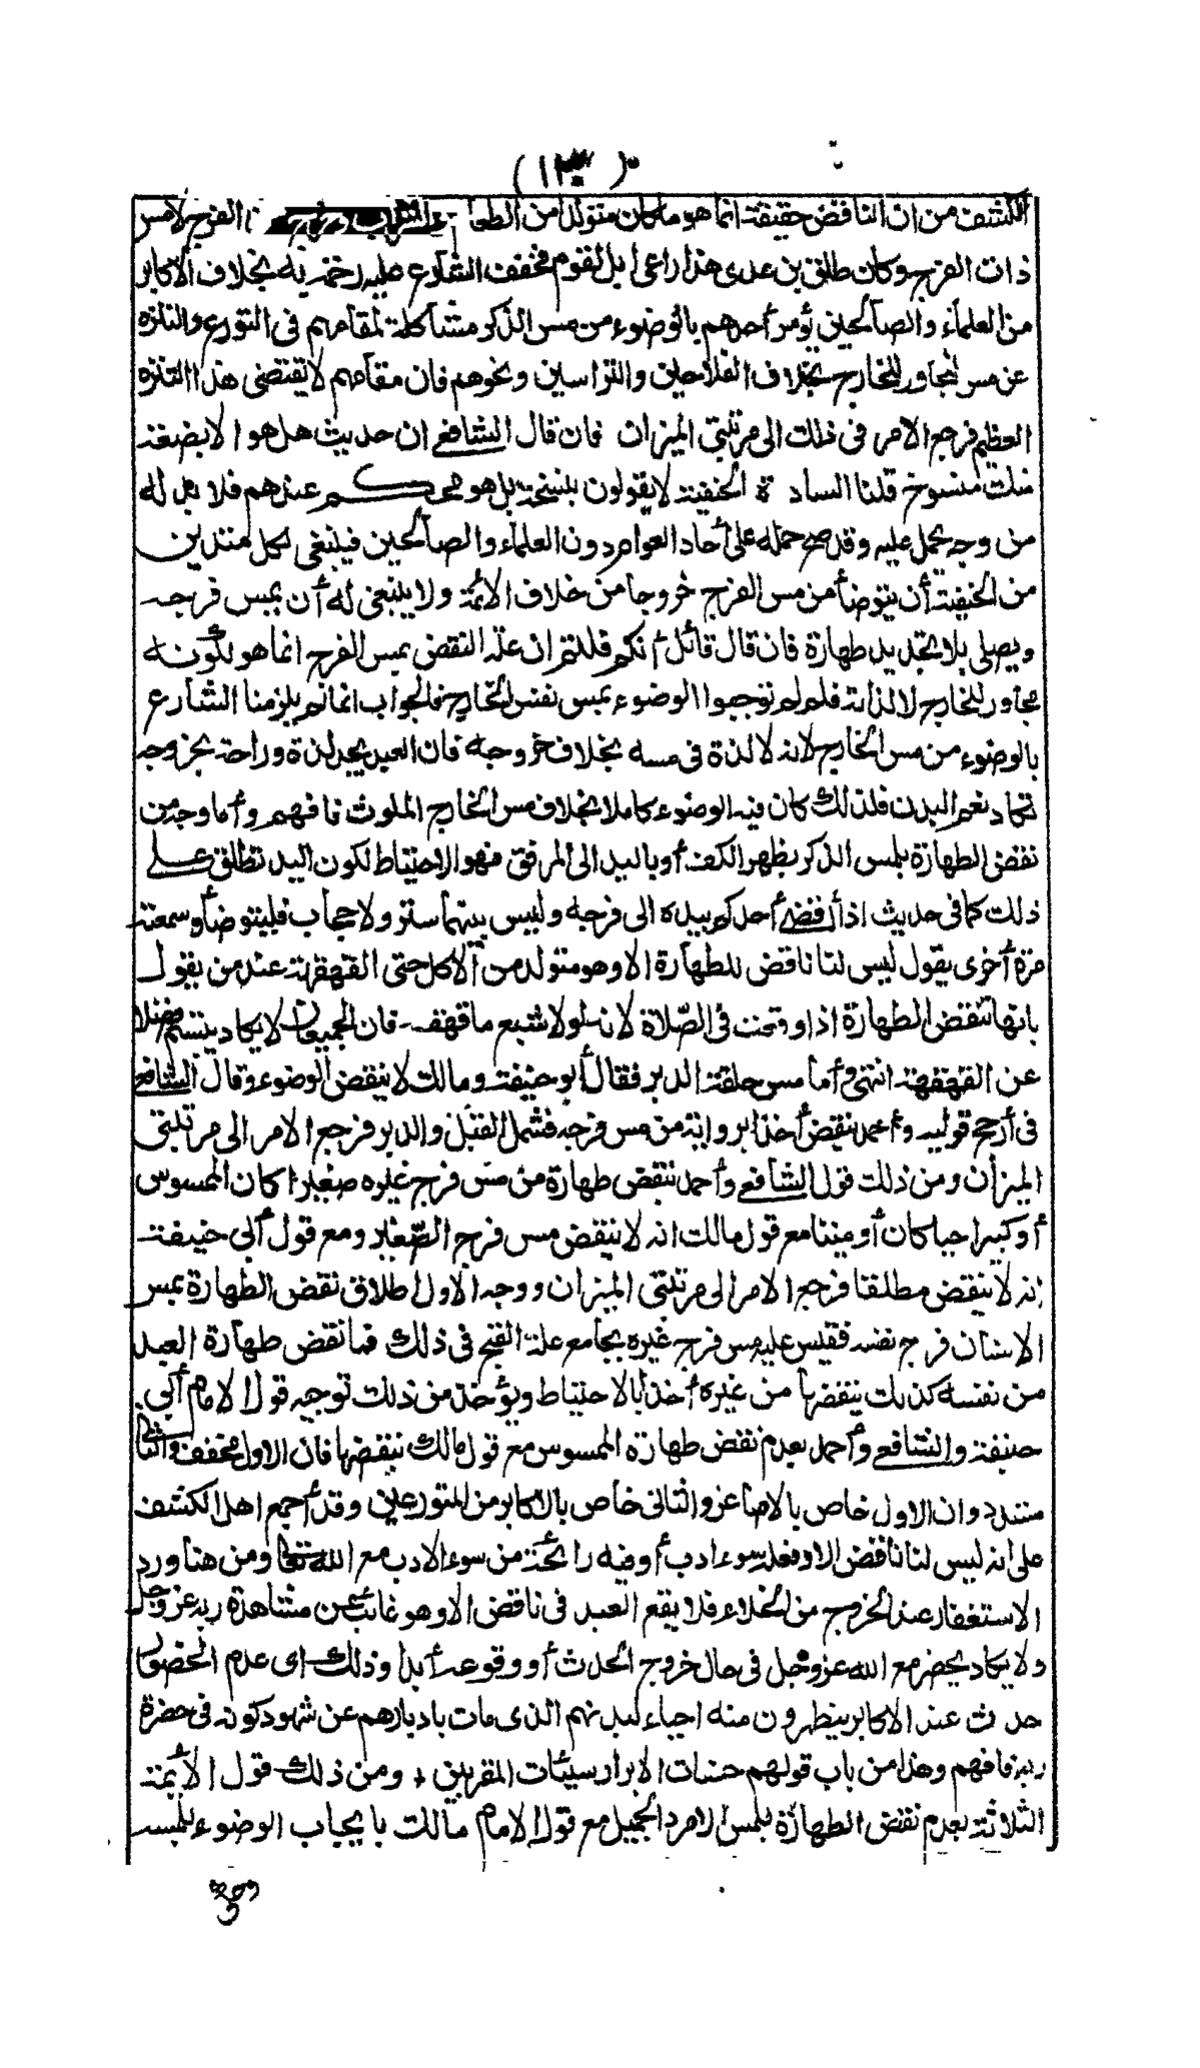 (١٣٠)
الكشف من ان الناقض حقيقة انما هو ما كان متولدا من الطعام والشراب الفرج لامس
ذات الفرج وكان طلق بن عدى هذا راعى ابل لقوم فخفف الشارع عليه رخصة له بخلاف الأكابر
من العلماء والصالحين يؤمر أحدهم بالوضوء من مس الذكر مشاكلة لمقامهم فى التورع والتنزه
عن مس المجاور للخارج بخلاف الفلاحين والتراسين ونحوهم فان مقامهم لا يقتضى هذا التنزه
العظيم فرجع الامر فى ذلك الى مرتبتى الميزان فان قال الشافعى ان حديث هل هو الا بضعة
منك منسوخ قلنا السادة الحنفية لا يقولون بنسخه بل هو محكم عندهم فلا بد له
من وجه يحمل عليه وقد صح حمله على أحاد العوام دون العلماء والصالحين فينبغى لكل متدين
من الحنفية أن يتوضأ من مس الفرج خروجا من خلاف الأئمة ولا ينبغى له أن يمس فرجه
ويصلى بلا تجديد طهارة فان قال قائل انكم قلتم ان علة النقض بمس الفرج انما هو لكونه
مجاور للخارج لا لذاته فلم لم توجبوا الوضوء بمس نفس الخارج فالجواب انما لم يلزمنا الشارع
بالوضوء من مس الخارج لانه لا لذة فى مسه بخلاف خروجه فان العبد يجد لذة وراحة بخروجه
تكاد تعم البدن فلذلك كان فيه الوضوء كاملا بخلاف مس الخارج الملوث فافهم وأما وجه من
نقض الطهارة بلمس الذكر بظهر الكف أو باليد الى المرفق فهو الاحتياط لكون اليد تطلق على
ذلك كما فى حديث اذا أفضى أحدكم بيده الى فرجه وليس بينهما ستر ولا حجاب فليتوضأ وسمعته
مرة أخرى يقول ليس لنا ناقض للطهارة الا وهو متولد من الأكل حتى القهقهة عند من يقول
بانها تنقض الطهارة اذا وقعت فى الصلاة لانه لولا شبع ما قهقه فان الجيعان لا يكاد يتبسم فضلا
عن القهقهة انتهى وأما مس حلقة الدبر فقال أبو حنيفة ومالك لا ينقض الوضوء وقال الشافعى
فى أرجح قوليه وأحمد ينقض أخذا برواية من مس فرجه فشمل القبل والدبر فرجع الامر الى مرتبتى
الميزان ومن ذلك قول الشافعى وأحمد تنتقض طهارة من مس فرج غيره صغيرا كان الممسوس
أو كبيرا حيا كان أو ميتا مع قول مالك انه لا ينقض مس فرج الصغير ومع قول أبى حنيفة
انه لا ينقض مطلقا فرجع الامر الى مرتبتى الميزان ووجه الاول اطلاق نقض الطهارة بمس
الانسان فرج نفسه فقيس عليه مس فرج غيره بجامع علة القبح فى ذلك فما نقض طهارة العبد
من نفسه كذلك ينقضها من غيره أخذا بالاحتياط ويؤخذ من ذلك توجيه قول الامام أبى
حنيفة والشافعى وأحمد بعدم نقض طهارة الممسوس مع قول مالك بنقضها فان الاول مخفف والثانى
مشدد وان الاول خاص بالاصاغر والثانى خاص بالاكابر من المتورعين وقد أجمع اهل الكشف
على انه ليس لنا ناقض الا وفعله سوء ادب أو فيه رائحة من سوء الادب مع الله تعالى ومن هنا ورد
الاستغفار عند الخروج من الخلاء فلا يقع العبد فى ناقض الا وهو غائب عن مشاهدة ربه عز وجل
ولا يكاد يحضر مع الله عز وجل فى حال خروج الحدث أو وقوعه أبدا وذلك اى عدم الحضور
حدث عند الاكابر يتطهرون منه احياء لبدنهم الذى مات بادبارهم عن شهود كونه فى حضرة
ربه فافهم وهذا من باب قولهم حسنات الابرار سيئات المقربين ومن ذلك قول الأئمة
الثلاثة بعدم نقض الطهارة بلمس الامرد الجميل مع قول الامام مالك بايجاب الوضوء بلمسه